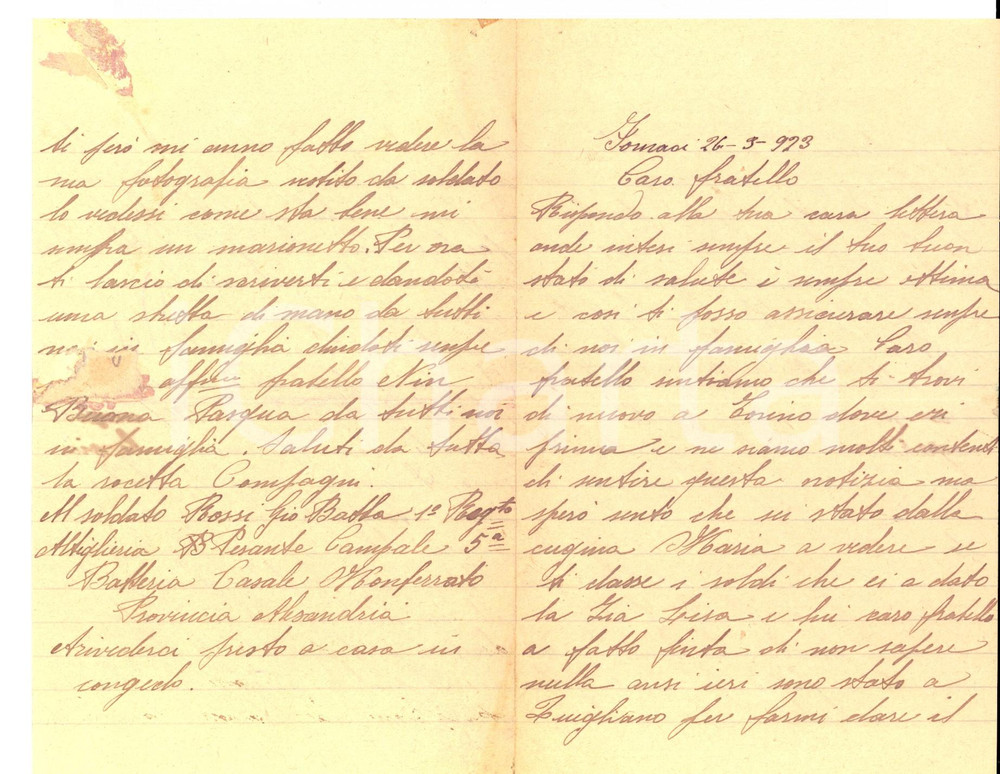 Fornaci 26-3-923
Caro fratello
Rispondo alla tua cara lettera
onde intesi sempre il tuo buon
stato di salute è sempre ottima
e così ti posso assicurare sempre
di noi in famiglia Caro
fratello sentiamo che ti trovi
di nuovo a Torino dove eri
prima e ne siamo molti contenti
di sentire questa notizia ma
sperò sento che sei stato dalla
cugina Maria a vedere se
ti dasse i soldi che ci a dato
la Zia Lisa e lui caro fratello
a fatto finta di non sapere
nulla ansi ieri sono stato a
per farmi dare il
ti però mi anno fatto vedere la
sua fotografia vestito da soldato
lo vedessi come sta bene mi
sempra un marionetto. Per ora
ti lascio di scriverti e dandoti
una stretta di mano da tutti
noi in famiglia sempre
affmo fratello Nin
Buona Pasqua da tutti noi
in famiglia. Saluti da tutta
la rocetta Compagni.
Al soldato Rossi Gio Batta 1º Regto
Altiglieria Pesante Campale 5a
Batteria Casale Monferrato
Provincia Alesandria
Arivederci presto a casa in
congedo.
Charta